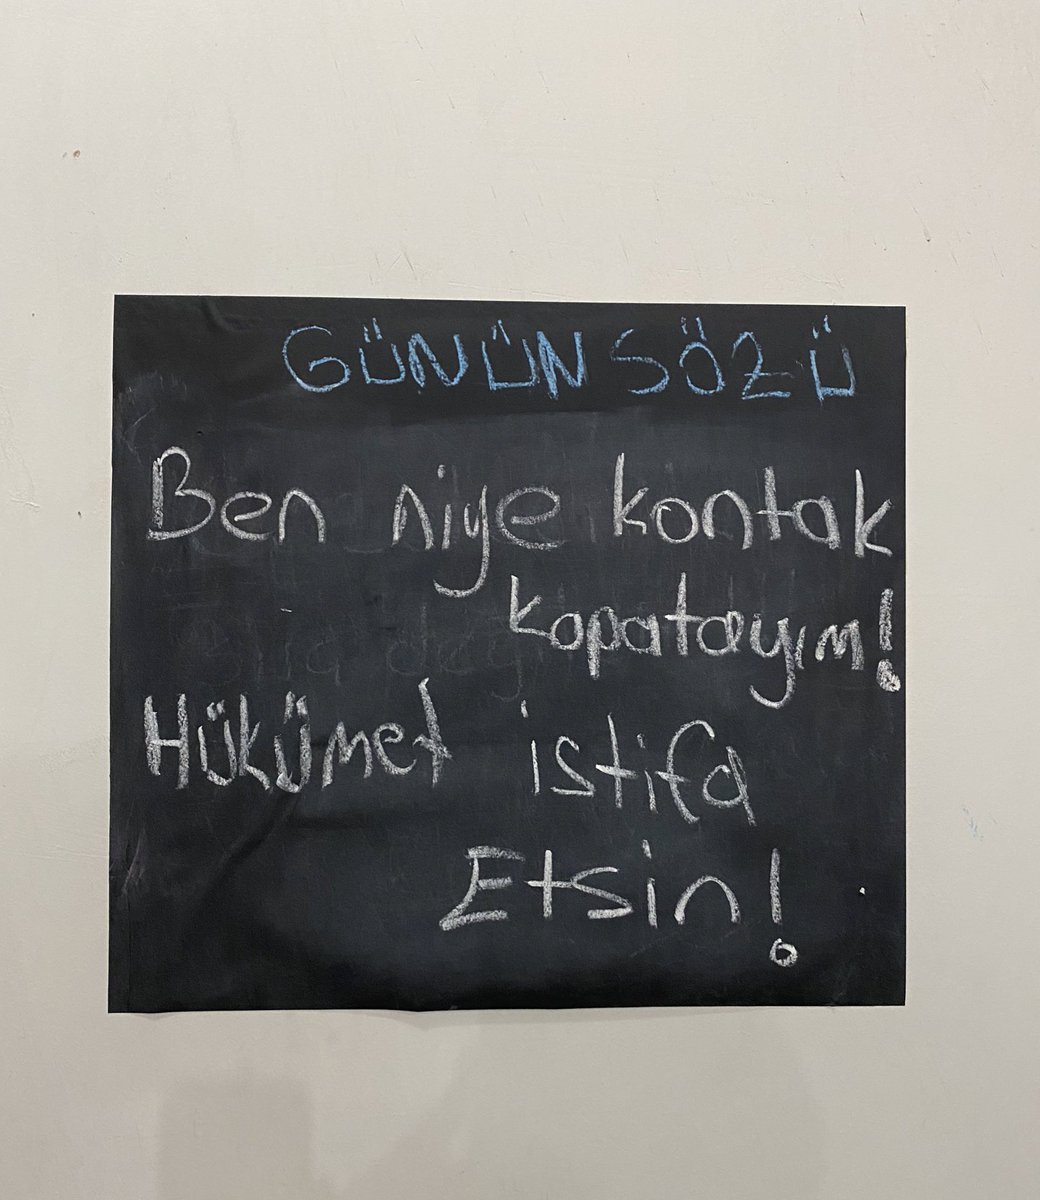 GÜNÜN SÖZÜ
Ben niye kontak
kapatayım!
Hükümet istifa
Etsin!